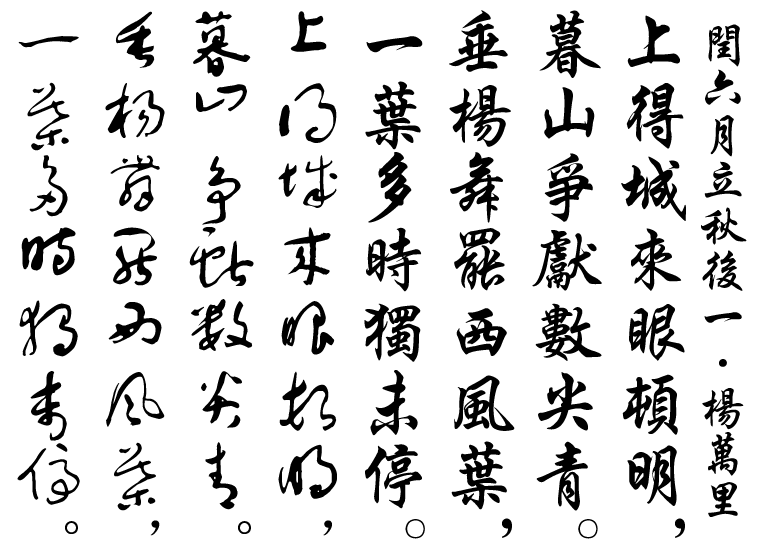 閏六月立秋後一·楊萬里
上得城來眼頓明,
暮山爭獻數尖青。
垂楊舞罷西風葉,
一葉多時獨未停。
上得城來眼頓明,
暮山爭獻數尖青。
垂楊舞罷西風葉,
一葉多時獨未停。